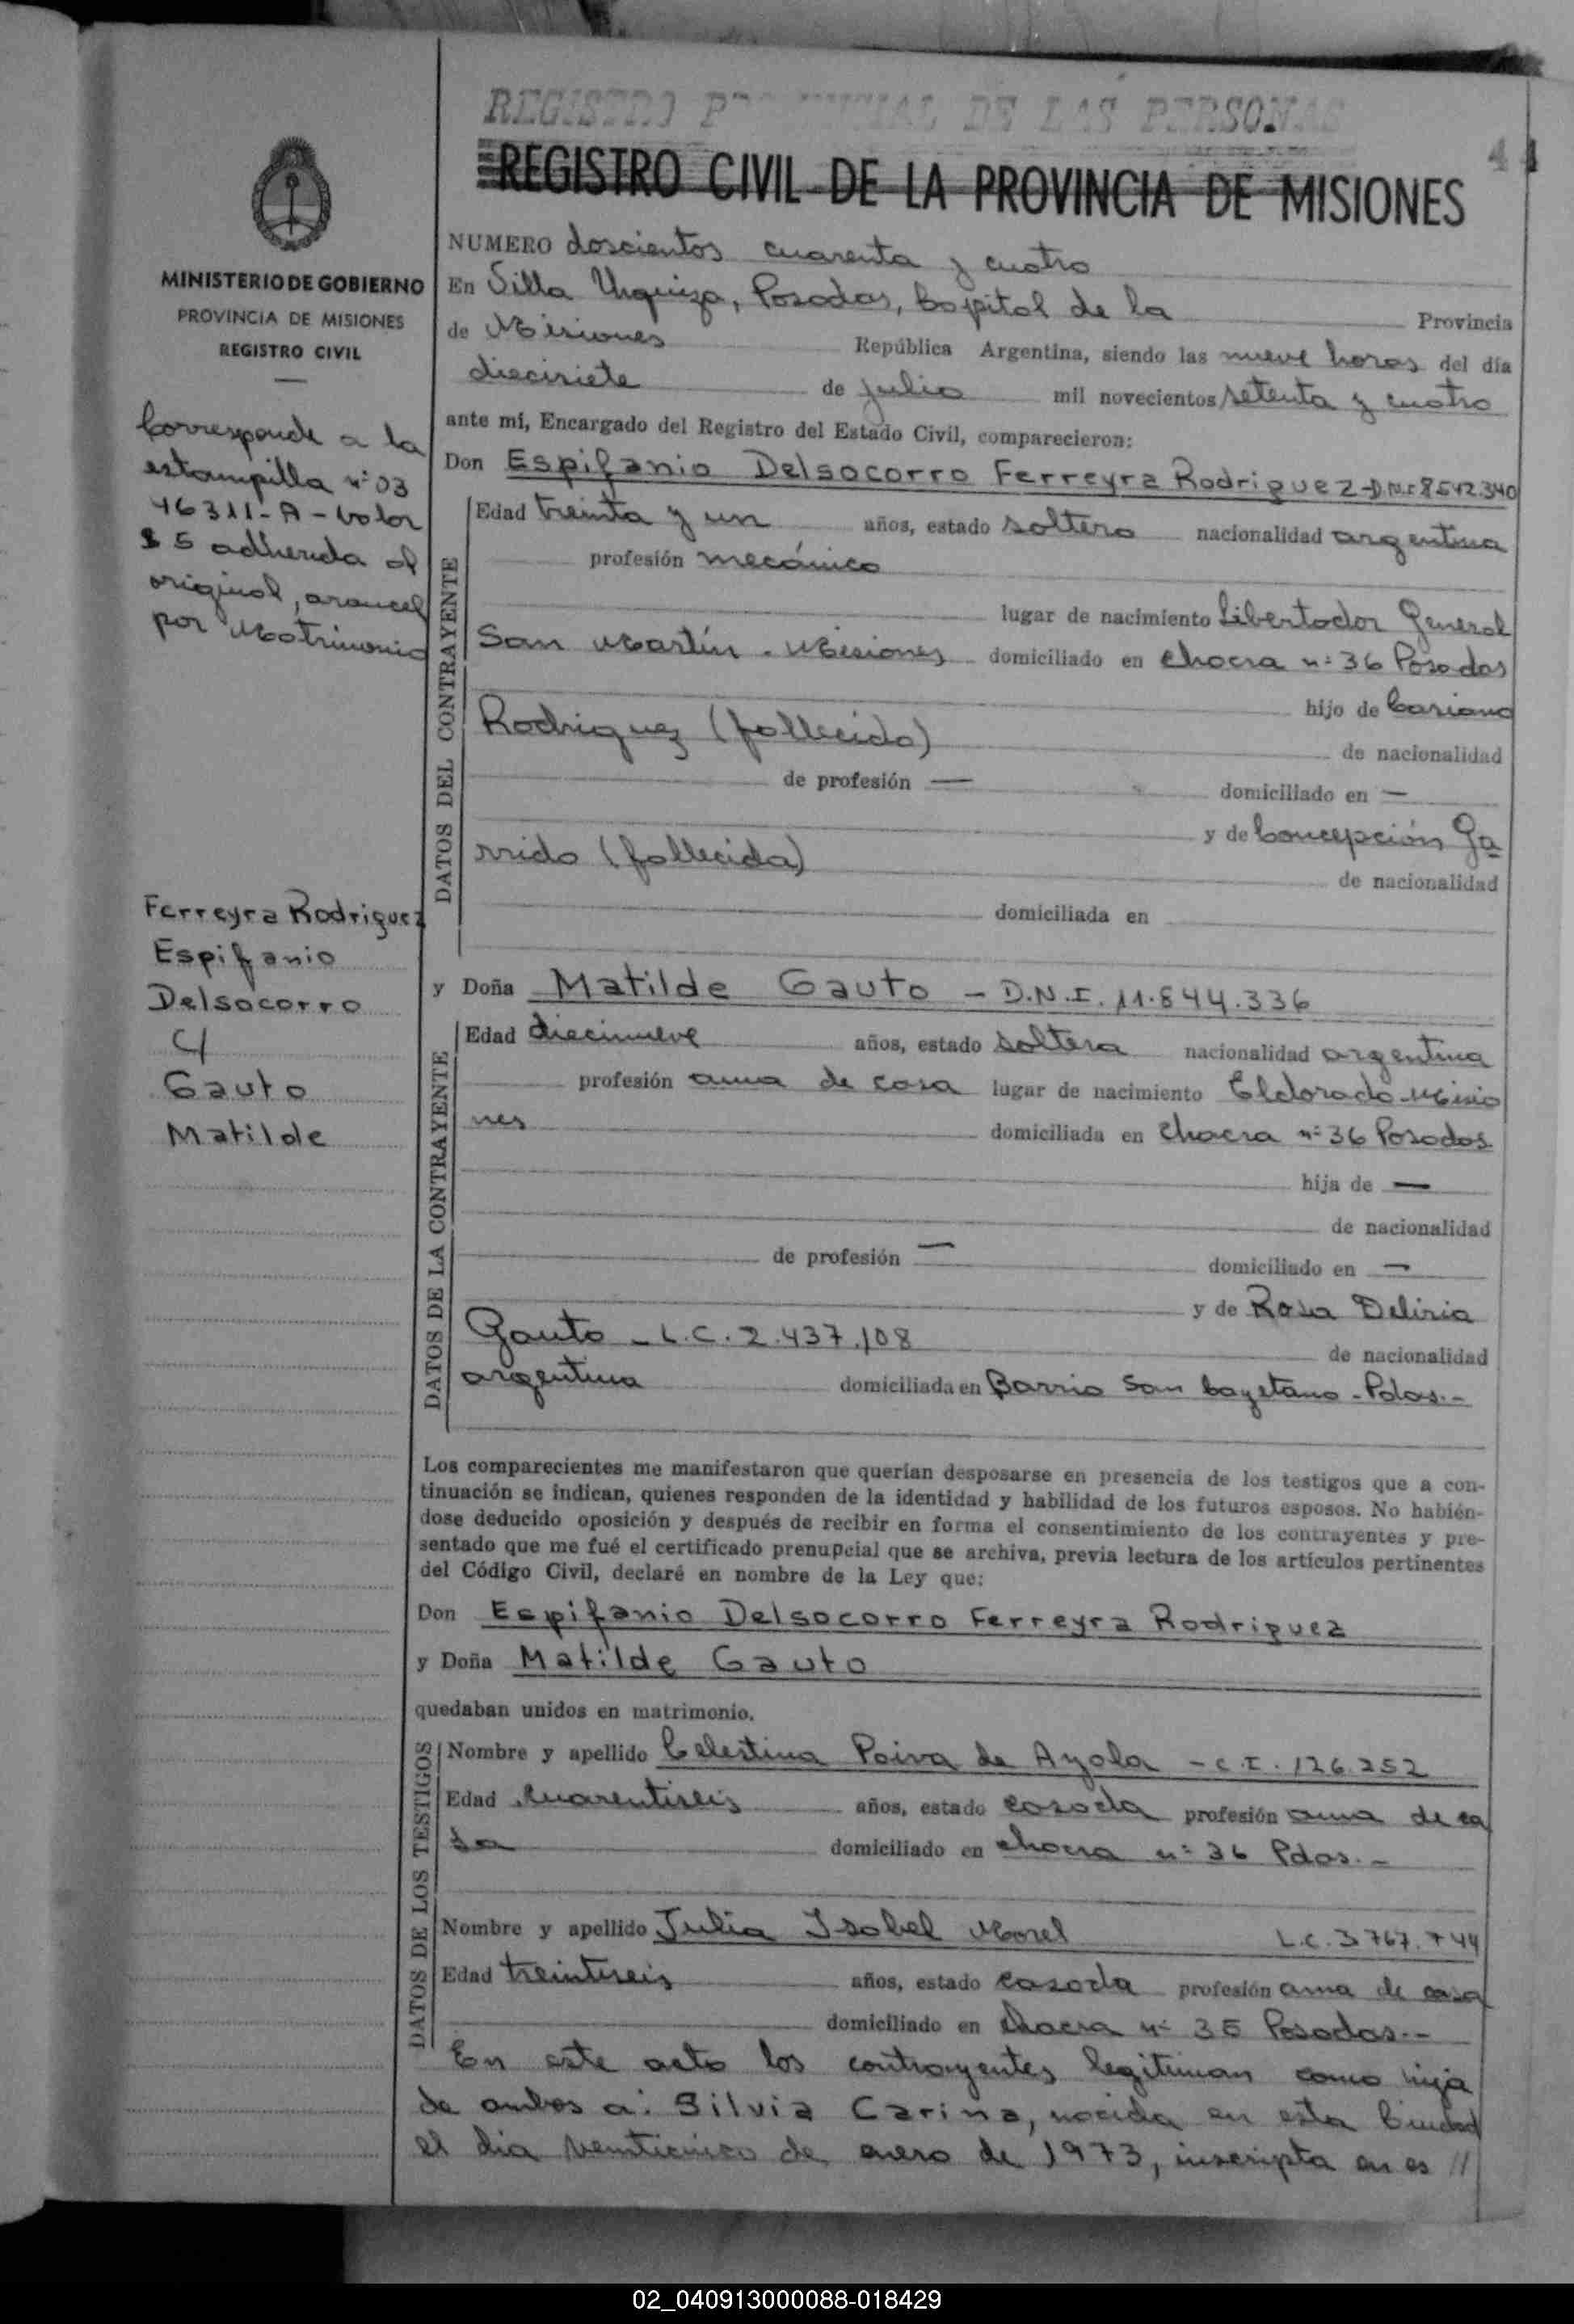 REGISTRO PROVINCIAL DE LAS PERSONAS
REGISTRO CIVIL DE LA PROVINCIA DE MISIONES
MINISTERIO DE GOBIERNO
PROVINCIA DE MISIONES
REGISTRO CIVIL
Corresponde a la
estampilla nº 03
46311-A-Valor
$ 5 adherida al
original, arancel
por Matrimonio
Ferreyra Rodriguez
Espifanio
Delsocorro
C/
Gauto
Matilde
NUMERO doscientos cuarenta y cuatro
En Villa Urquiza, Posadas, Capital de la Provincia
de Misiones República Argentina, siendo las nueve horas del día
diecisiete de julio mil novecientos setenta y cuatro
ante mi, Encargado del Registro del Estado Civil, comparecieron:
Don Espifanio Delsocorro Ferreyra Rodriguez-D.N.I 8.542.340
DATOS DEL CONTRAYENTE
Edad treinta y un años, estado soltero nacionalidad argentina
profesión mecánico
lugar de nacimiento Libertador General
San Martín - Misiones domiciliado en chacra nº 36 Posadas
hijo de Casiano
Rodriguez (fallecido) de nacionalidad
de profesión — domiciliado en —
y de Concepción Ga
rrido (fallecida) de nacionalidad
domiciliada en
y Doña Matilde Gauto - D.N.I. 11.844.336
DATOS DE LA CONTRAYENTE
Edad diecinueve años, estado soltera nacionalidad argentina
profesión ama de casa lugar de nacimiento Eldorado-Misio
nes domiciliada en chacra nº 36 Posadas
hija de —
de nacionalidad
de profesión — domiciliado en —
y de Rosa Deliria
Gauto - L.C. 2.437.108 de nacionalidad
argentina domiciliada en Barrio San Cayetano - Pdas.-
Los comparecientes me manifestaron que querían desposarse en presencia de los testigos que a con-
tinuación se indican, quienes responden de la identidad y habilidad de los futuros esposos. No habién-
dose deducido oposición y después de recibir en forma el consentimiento de los contrayentes y pre-
sentado que me fué el certificado prenupcial que se archiva, previa lectura de los artículos pertinentes
del Código Civil, declaré en nombre de la Ley que:
Don Espifanio Delsocorro Ferreyra Rodriguez
y Doña Matilde Gauto
quedaban unidos en matrimonio.
DATOS DE LOS TESTIGOS
Nombre y apellido Celestina Paiva de Ayala - C.I. 126.252
Edad cuarentiseis años, estado casada profesión ama de ca
sa domiciliado en chacra nº 36 Pdas.-
Nombre y apellido Julia Isabel Morel L.C. 3767.744
Edad treintiseis años, estado casada profesión ama de casa
domiciliado en chacra nº 35 Posadas.-
En este acto los contrayentes legitiman como hija
de ambos a: Silvia Carina, nacida en esta Ciudad
el día veinticinco de enero de 1973, inscripta en es //
02_040913000088-018429